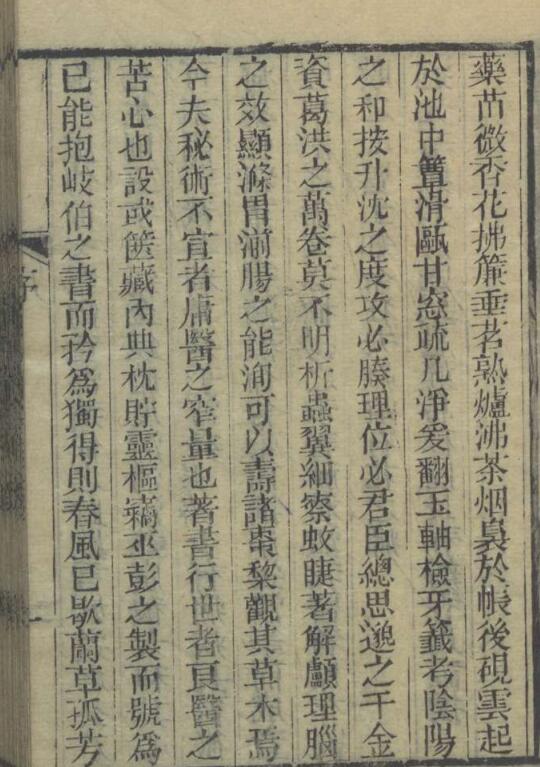 藥苗微香花拂簾垂茗熟爐沸茶烟裊於帳後硯雲起
於池中簟滑甌甘窓疏几淨爰翻玉軸檢牙籤考陰陽
之和按升沈之度攻必腠理位必君臣總思邈之千金
資葛洪之萬卷莫不明析蟲翼細察蚊睫著解顱理腦
之效顯滌胃湔腸之能洵可以壽諸棗黎觀其草木焉
今夫秘術不宣者庸醫之窄量也著書行世者良醫之
苦心也設或篋藏內典枕貯靈樞竊巫彭之製而號爲
已能抱岐伯之書而矜爲獨得則春風已歇蘭草孤芳
序